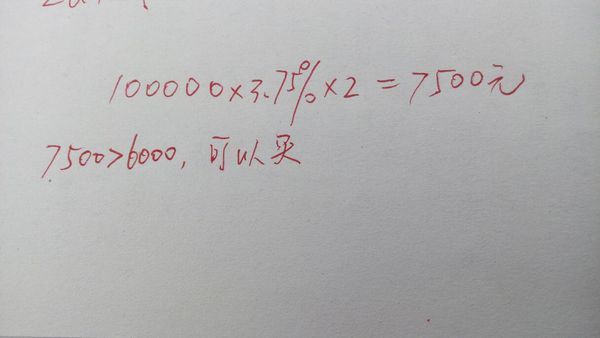 100000×3.75%×2=7500元
7500>6000，可以买